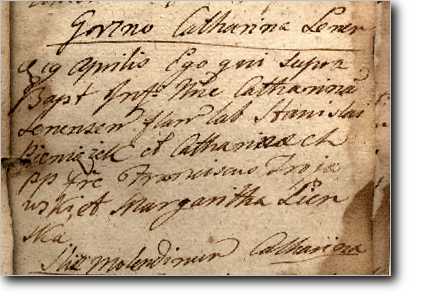 Govino Catharina Lener
19 Aprilis Ego qui supra
Bapt Inf: Nne Catharina
Lenenzen lab Stanislai
Pieniązek et Catharina
pp fre Franciscus Troja
wski, et Margaritha Lien
ska
molendinum Catharina